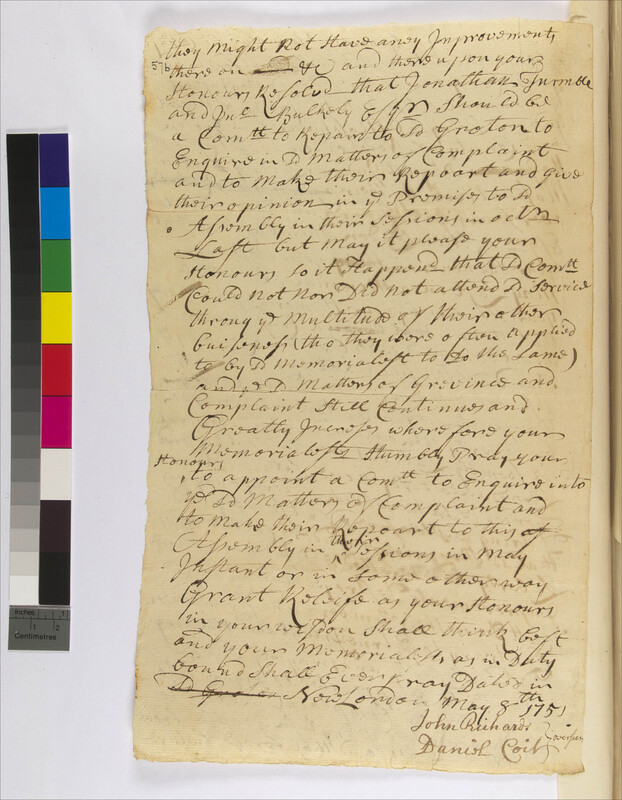 they might Not Have aney Improvements
57b
there on &c and there upon your
Honours Resolvd that Jonathan Turmble
and Jnº Bulkely Esqrs Should be
a Comtt to Repair to Sd Groton to
Enquire in Sd Matters of Complaint
and to Make their Repoart and give
their opinion in ye Premises to Sd
Assembly in their Sessions in octbr
Last but May it please your
Honours so it Happend that Sd Comtt
Could not Nor Did not attend Sd Service
throug ye Multitude of their other
buiseness (tho they were often applied
to by Sd Memorialest to do the Same)
and ye Sd Matters of Grevince and
Complaint Still Continues and
Greatly Increses where fore your
Memorialests Humbly Pray your
Honours
to appoint a Comtt to Enquire into
ye Sd Matters of Complaint and
to Make their Repoart to this
Assembly in their Sessions in May
Instant or in Some other way
Grant Releife as your Honours
in your wisdon Shall think best
and your Memorialests as in Duty
bound Shall Ever pray Dated in
New London May 8th 1751
John Richards
Daniel Coit
Inches 1 2
Centimetres